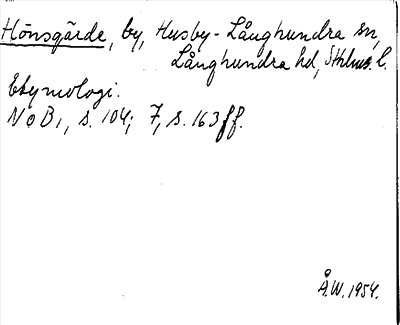 Hönsgärde, by, Husby-Långhundra sn,
Långhundra hd, Sthlms l.
Etymologi.
NoB 1, s. 104; 7, s. 163 ff.
Å.W. 1954.